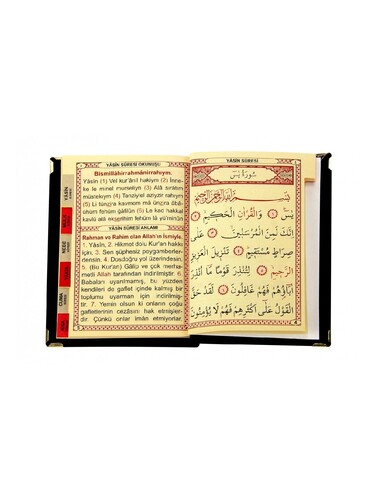 YÂSÎN SÛRESİ OKUNUŞU
Bismillâhirrahmânirrahıym.
Yâsîn (1) Vel kur'ânil hakiym (2) İnne-
ke le minel murselîyn (3) Alâ sırâtım
müstekıym (4) Tenziylel azîzirrahıym
(5) Li tünzira kavmem mâ ünzira âbâ-
ühüm fehüm ğâfilûn (6) Le kad hakkal
kavlü alâ ekserihim fehüm lâ yü'minûn
YÂSÎN SÛRESİ ANLAMI
Rahman ve Rahîm olan Allah'ın İsmiyle.
1. Yâsîn, 2. Hikmet dolu Kur'an hakkı
için, 3. Sen şüphesiz peygamberler-
densin. 4. Dosdoğru yol üzerindesin.
5. (Bu Kur'an) Gâlip ve çok merha-
metli Allah tarafından indirilmiştir. 6.
Babaları uyarılmamış, bu yüzden
kendileri de gaflet içinde kalmış bir
toplumu uyarman için indirilmiş-
tir. 7. Yemin olsun ki onların çoğu
gafletlerinin cezâsını hak etmişler-
dir. Çünkü onlar iman etmiyorlar.
YÂSİN
NEBE
CUMA
YÂSÎN SÛRESİ
سُورَةُ يٰسٓ
بِسْمِ اللّٰهِ الرَّحْمٰنِ الرَّحِيمِ
يٰسٓ ﴿١﴾ وَالْقُرْاٰنِ الْحَكِيمِ ﴿٢﴾
اِنَّكَ لَمِنَ الْمُرْسَلِينَ ﴿٣﴾ عَلٰى
صِرَاطٍ مُسْتَقِيمٍ ﴿٤﴾ تَنْزِيلَ الْعَزِيزِ
الرَّحِيمِ ﴿٥﴾ لِتُنْذِرَ قَوْمًا مَٓا اُنْذِرَ
اٰبَٓاؤُهُمْ فَهُمْ غَافِلُونَ ﴿٦﴾ لَقَدْ حَقَّ
الْقَوْلُ عَلٰٓى اَكْثَرِهِمْ فَهُمْ لَا يُؤْمِنُونَ